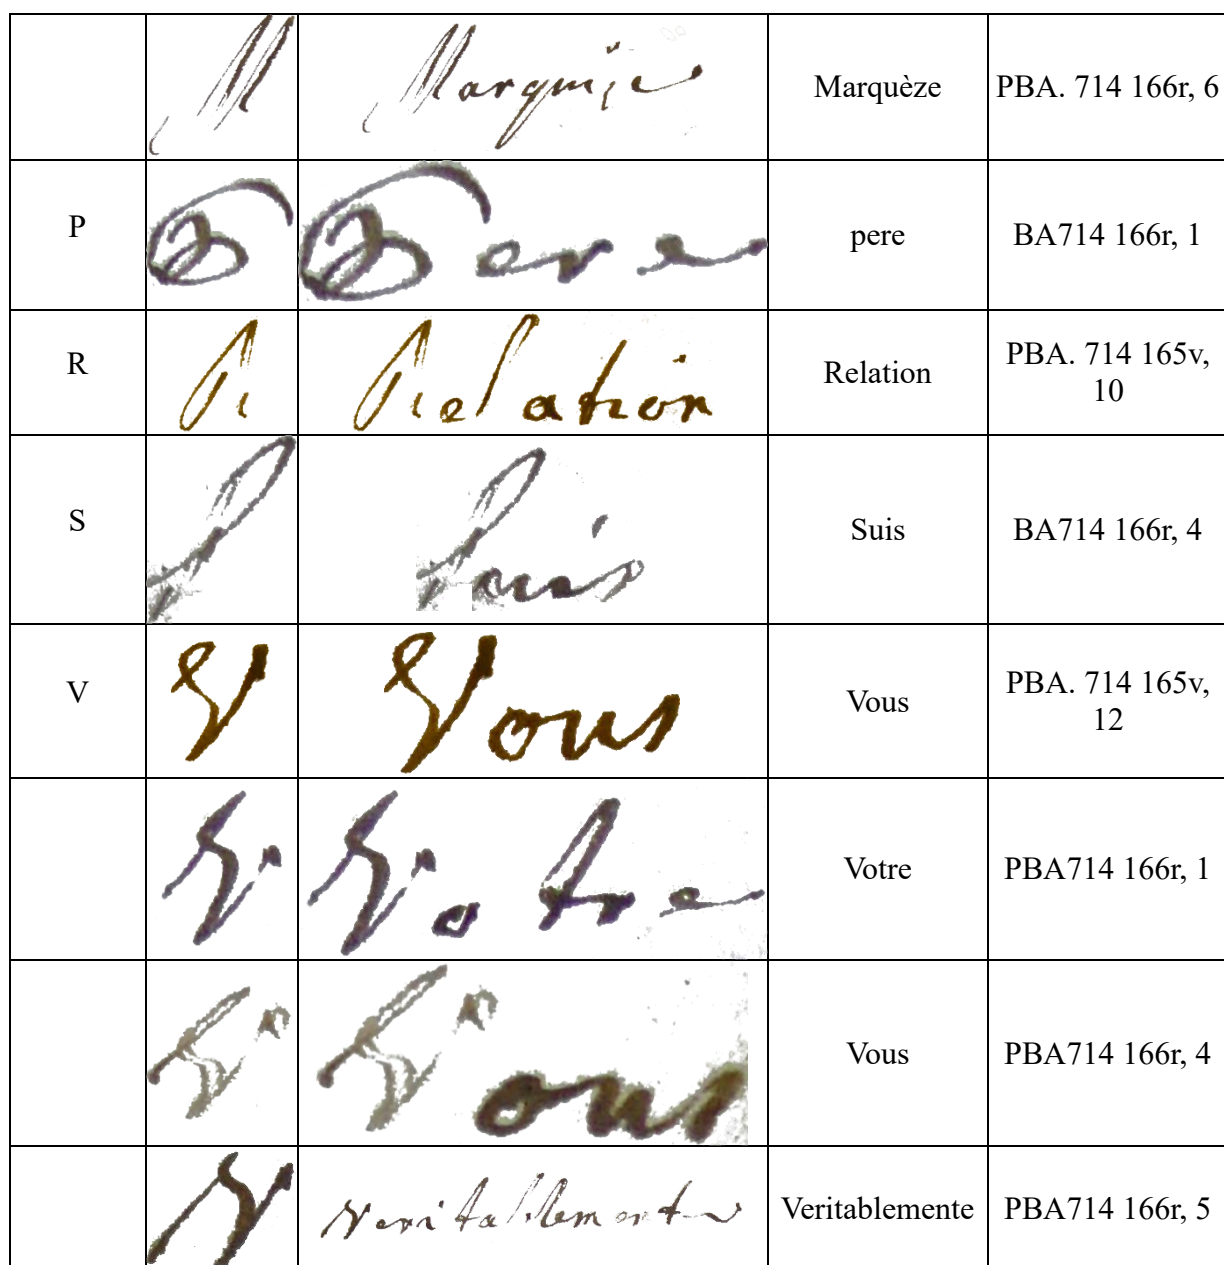 M Marquèze Marquèze PBA. 714 166r, 6
P P Pere pere BA714 166r, 1
R R Relation Relation PBA. 714 165v, 10
S S Suis Suis BA714 166r, 4
V V Vous Vous PBA. 714 165v, 12
V Votre Votre PBA714 166r, 1
V Vous Vous PBA714 166r, 4
V Veritablemente Veritablemente PBA714 166r, 5